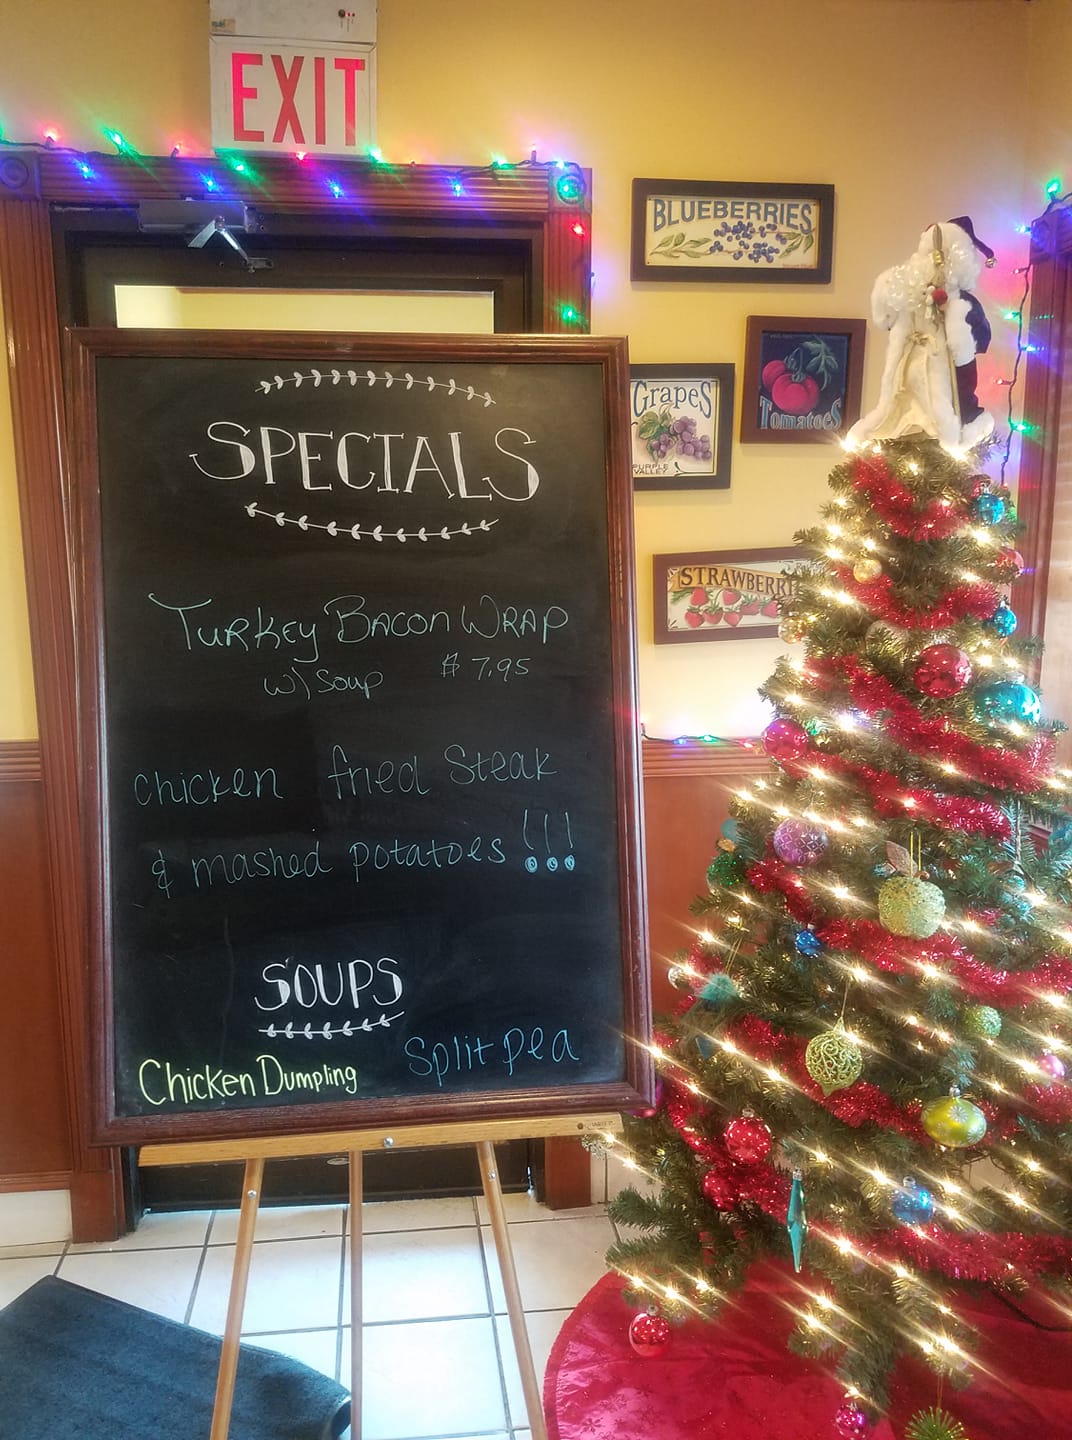 EXIT
BLUEBERRIES
Grapes
PURPLE
VALLEY
Tomatoes
STRAWBERRI
SPECIALS
Turkey Bacon Wrap
w\ Soup $ 7.95
chicken fried Steak
& mashed potatoes !!!
SOUPS
Chicken Dumpling
Split pea